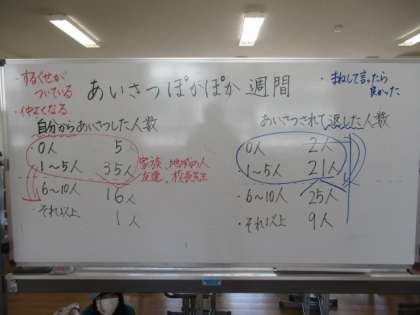 ・するくせが
ついている
・仲よくなる
あいさつぽかぽか週間
・まねして言ったら
良かった
自分からあいさつした人数
・0人 5
・1〜5人 35人
・6〜10人 16人
・それ以上 1人
家族、地域の人
友達、校長先生
あいさつされて返した人数
・0人 2人
・1〜5人 21人
・6〜10人 25人
・それ以上 9人